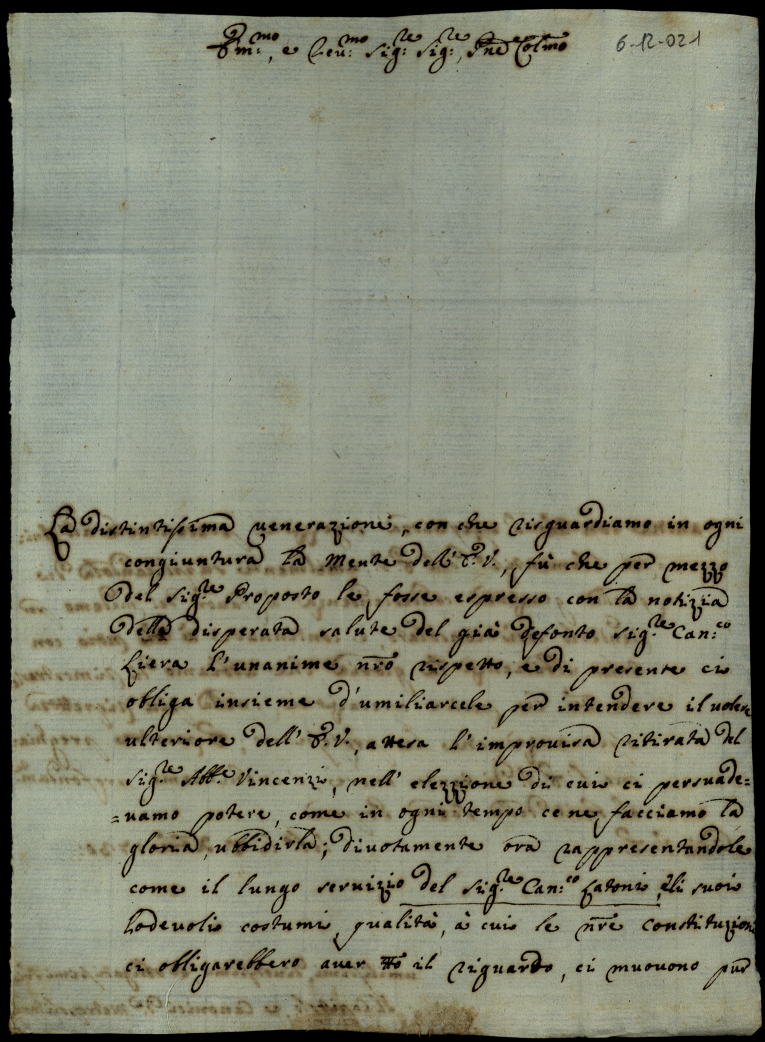 Em.mo, e Reu.mo Sig.re Sig.re, Pne Colmo
6-12-021
La distintissima venerazione, con che risguardiamo in ogni
congiuntura la Mente dell'E. V., fù che per mezzo
del Sig.re Proposto le fosse espresso con la notizia
della disperata salute del già defonto Sig.re Can.co
Liera l'unanime nro rispetto, e di presente ci
obliga insieme d'umiliarcele per intendere il volere
ulteriore dell'E. V., attesa l'improvisa ritirata del
Sig.re Abb.e Vincenzi, nell'elezzione di cui ci persuade=
=uamo potere, come in ogni tempo ce ne facciamo la
gloria, ubbidirla; divotamente ora rappresentandole
come il lungo servizio del Sig.re Can.co Zatoni, e li suoi
lodevoli costumi, qualità, à cui le nre constituzioni
ci obligarebbero aver tto il riguardo, ci muovono pur